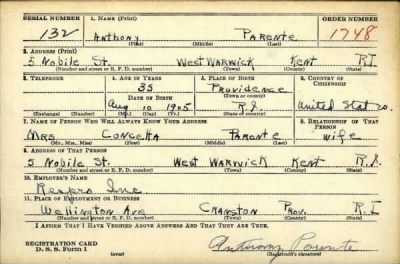 SERIAL NUMBER 1. NAME (Print) ORDER NUMBER
132 Anthony Parente 1748
(First) (Middle) (Last)
2. ADDRESS (Print)
5 Nobile St. West Warwick Kent R I
(Number and street or R. F. D. number) (Town) (County) (State)
3. TELEPHONE 4. AGE IN YEARS 5. PLACE OF BIRTH 6. COUNTRY OF CITIZENSHIP
35 Providence
DATE OF BIRTH (Town or county)
Aug 10 1905 R.I. United
(Exchange) (Number) (Mo.) (Day) (Yr.) (State or country)
7. NAME OF PERSON WHO WILL ALWAYS KNOW YOUR ADDRESS 8. RELATIONSHIP OF THAT PERSON
Mrs Concetta Parente Wife
(Mr., Mrs., Miss) (First) (Middle) (Last)
9. ADDRESS OF THAT PERSON
5 Nobile St. West Warwick Kent R.I.
(Number and street or R. F. D. number) (Town) (County) (State)
10. EMPLOYER'S NAME
Respro Inc
11. PLACE OF EMPLOYMENT OR BUSINESS
Wellington Ave Cranston Prov. R. I
(Number and street or R. F. D. number) (Town) (County) (State)
I AFFIRM THAT I HAVE VERIFIED ABOVE ANSWERS AND THAT THEY ARE TRUE.
REGISTRATION CARD
D. S. S. Form 1 (over) Anthony Parente
(Registrant's signature)